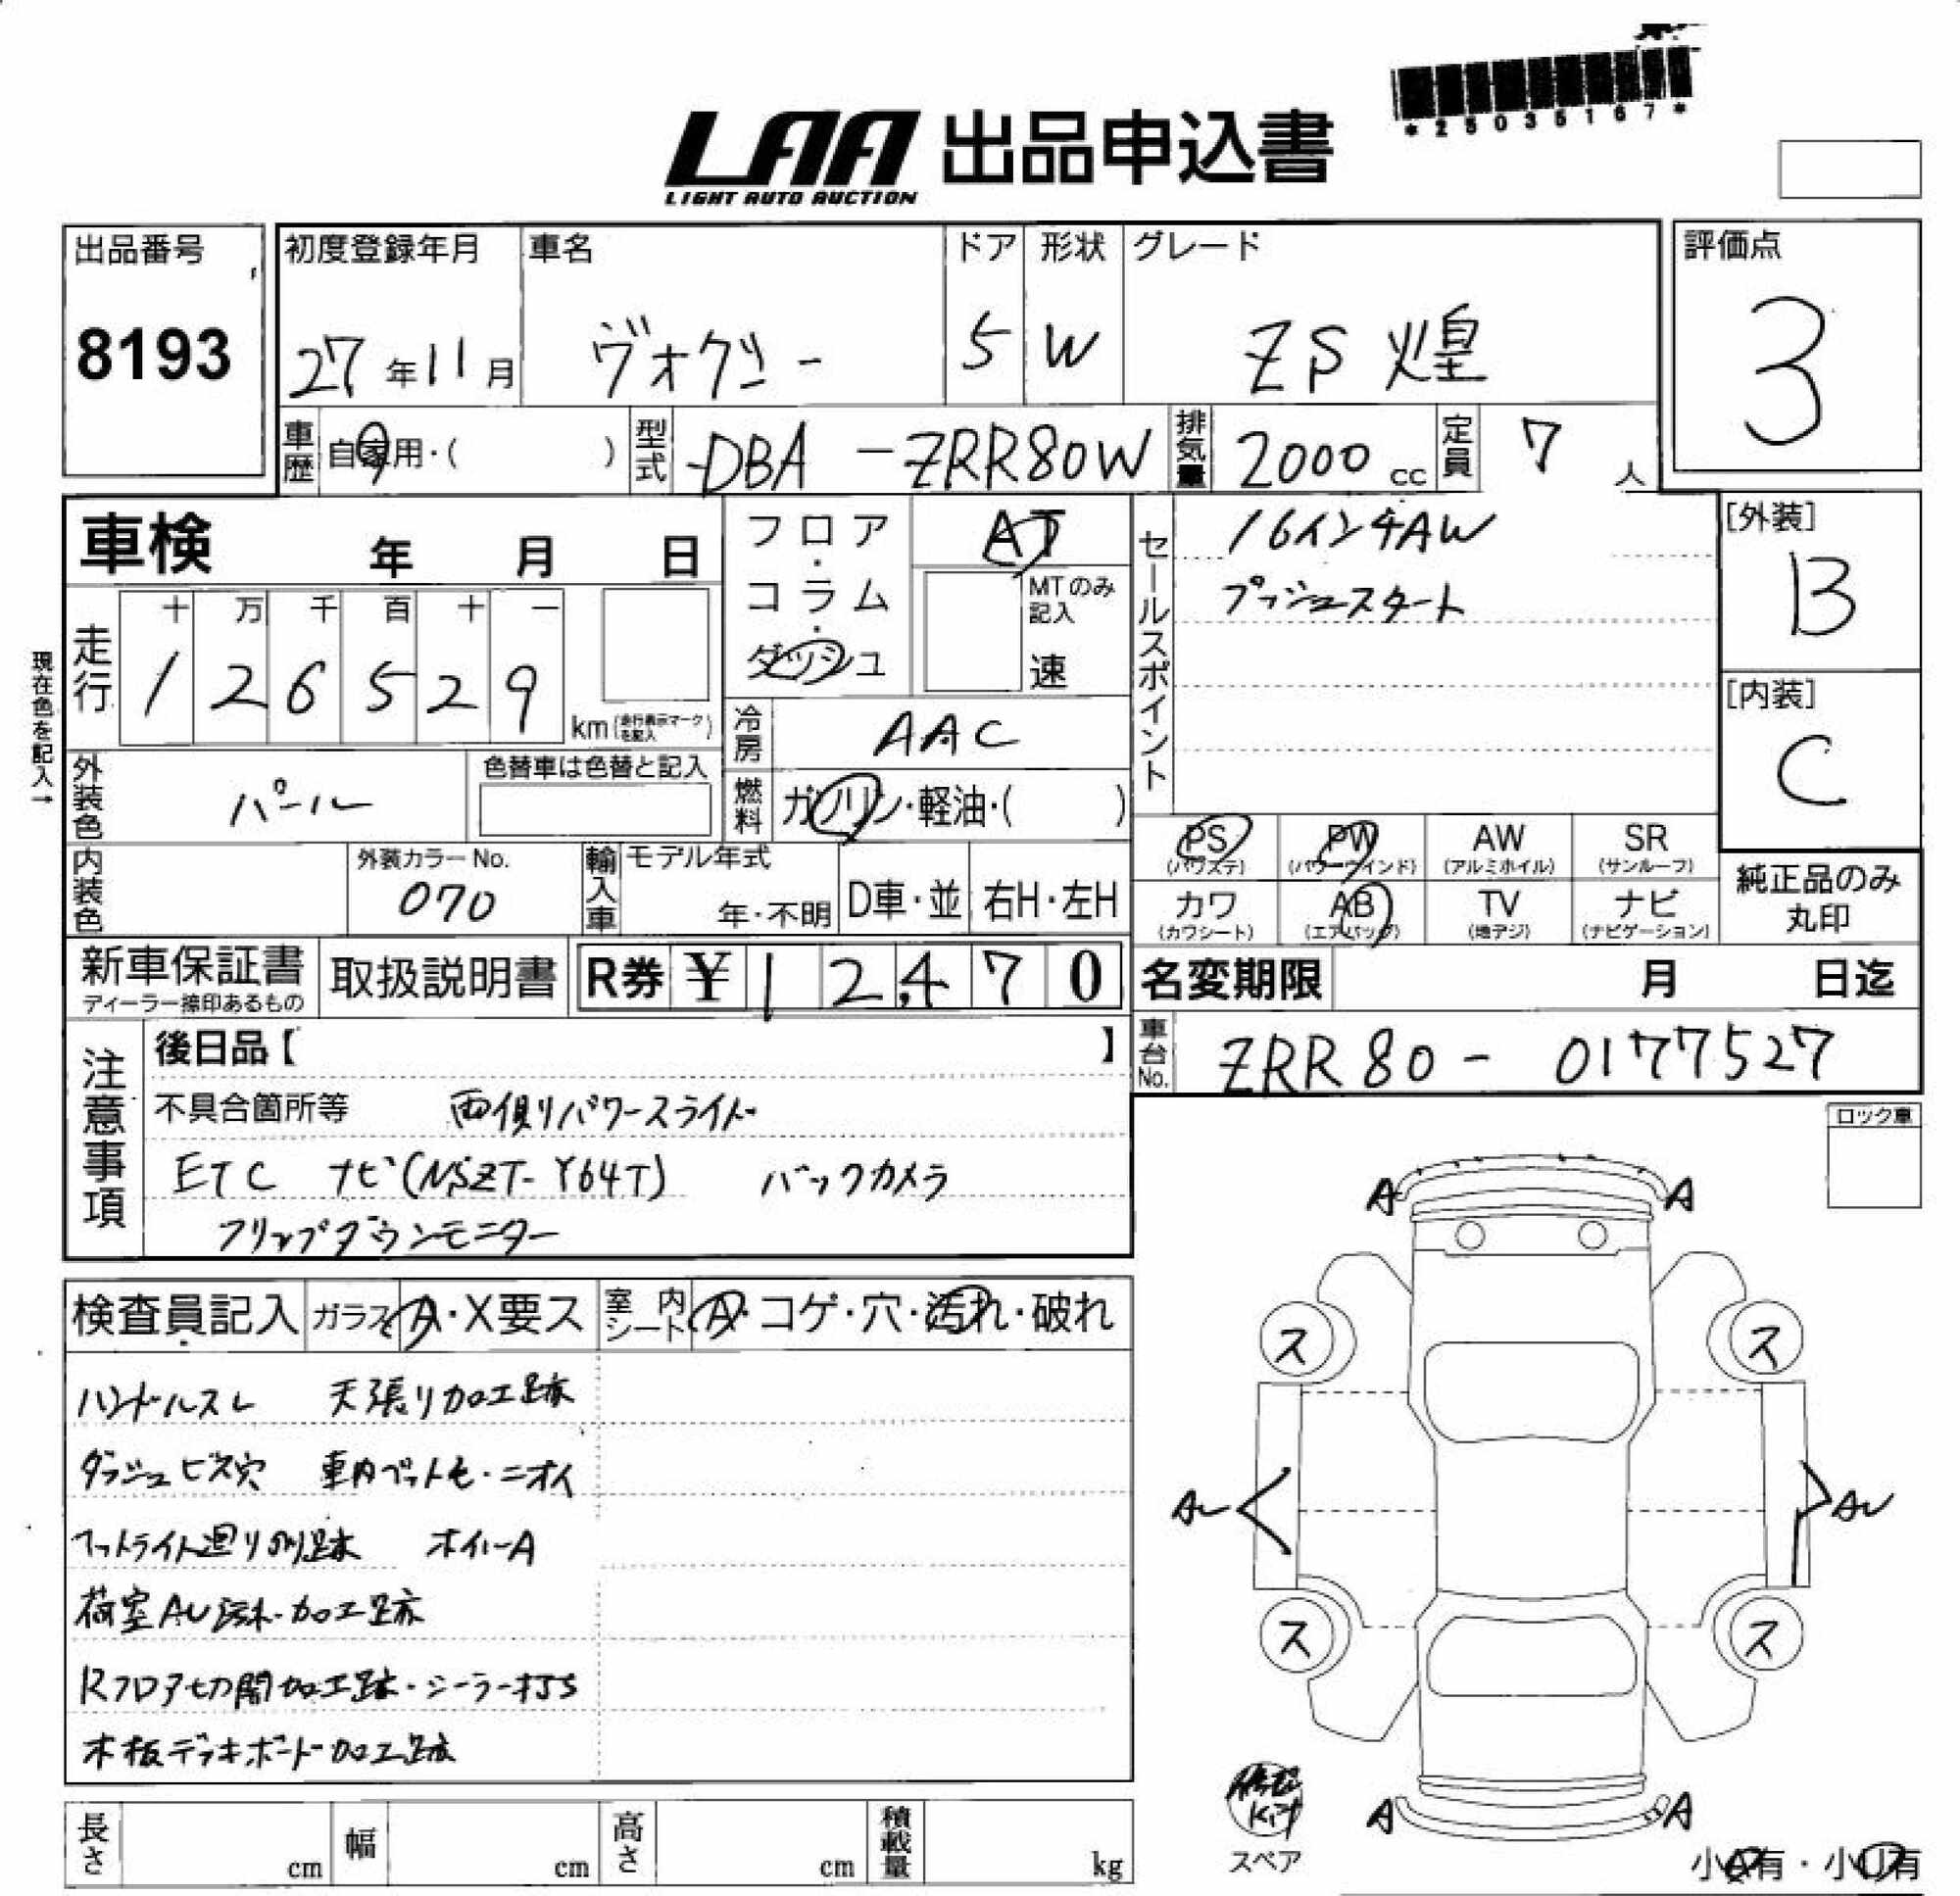 *25035167*
LAA 出品申込書
LIGHT AUTO AUCTION
出品番号
8193
初度登録年月
27年11月
車名
ヴォクシー
ドア
5
形状
W
グレード
ZS 煌
評価点
3
車歴
自家用・( )
型式
DBA-ZRR80W
排気量
2000 cc
定員
7 人
車検 年 月 日
フロア・コラム・ダッシュ
AT
MTのみ記入
速
セールスポイント
16インチAW
プッシュスタート
[外装]
B
[内装]
C
現在色を記入→
走行
十 万 千 百 十 一
1 2 6 5 2 9
km(走行表示マークを記入)
冷房
AAC
外装色
パール
色替車は色替と記入
燃料
ガソリン・軽油・( )
PS
(パワステ)
PW
(パワーウィンド)
AW
(アルミホイル)
SR
(サンルーフ)
カワ
(カワシート)
AB
(エアバッグ)
TV
(地デジ)
ナビ
(ナビゲーション)
純正品のみ
丸印
内装色
外装カラーNo.
070
輸入車
モデル年式
年・不明
D車・並
右H・左H
新車保証書
ディーラー捺印あるもの
取扱説明書
R券 ¥12,470
名変期限 月 日迄
車台No.
ZRR80-0177527
注意事項
後日品【 】
不具合箇所等 両側パワースライド
ETC ナビ(NSZT-Y64T) バックカメラ
フリップダウンモニター
ロック車
検査員記入
ガラス A・X要ス
室内シート A・コゲ・穴・汚れ・破れ
ハンドルスレ 天張り加工跡
ダッシュビス穴 車内ペット毛・ニオイ
フットライト廻りのり跡 ホイールA
荷室AU汚れ・加工跡
Rフロア切開加工跡・シーラー打S
木板デッキボード加工跡
A A
ス ス
AU AU
ス ス
A A
修理Kit
スペア
小A有・小U有
長さ cm
幅 cm
高さ cm
積載量 kg